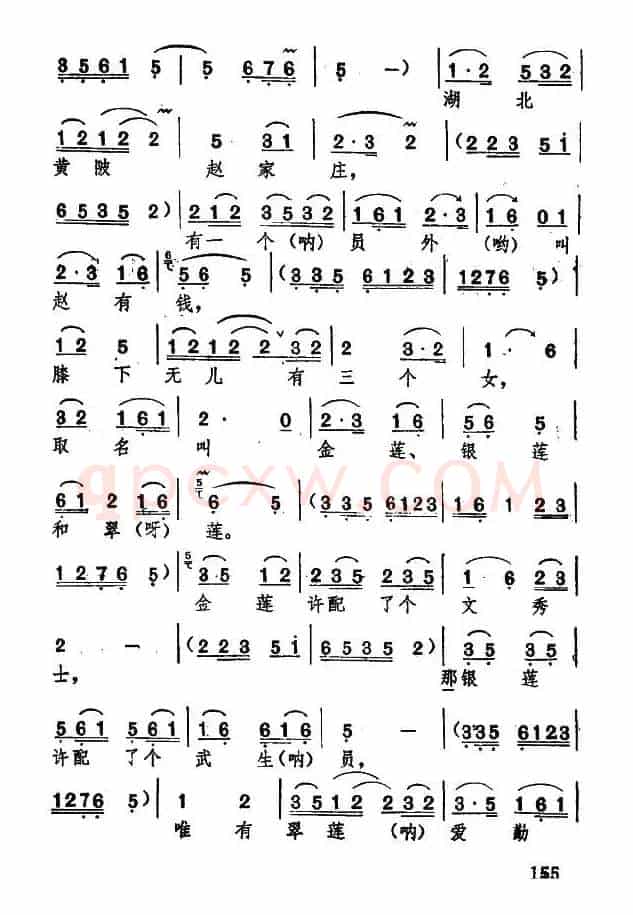 3561 5 | 5 676 | 5 — ) | 1·2 532
湖 北
1212 2 | 5 31 | 2·3 2 | (223 5i
黄陂 赵家 庄,
6535 2) | 212 3532 | 161 2·3 | 16 01
有一 个(呐) 员 外 (哟) 叫
2·3 16 | 56 5 | (335 6123 | 1276 5) |
赵 有 钱,
12 5 | 1212 2 32 | 2 3·2 | 1· 6
膝下 无儿 有 三 个 女,
32 161 | 2· 0 | 2·3 16 | 56 5
取名 叫 金 莲、 银 莲
61 2 16 | 6 5 | (335 6123 | 16 1 23
qpcxw.COM
和 翠(呀) 莲。
1276 5) | 3·5 12 | 235 23 | 1· 6 23
金 莲 许配 了个 文 秀
2 — | (223 5i | 6535 2) | 35 35
士, 那银 莲
561 561 | 16 616 | 5 — | (335 6123
许配 了个 武 生(呐) 员,
1276 5) | 1 2 | 3512 232 | 3·5 161
唯 有 翠 莲 (呐) 爱 勤
155